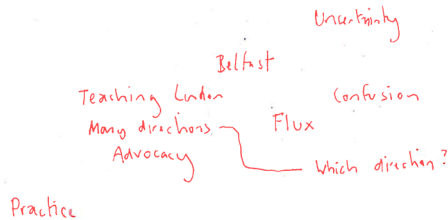 Uncertainty
Belfast
Teaching London
Confusion
Many directions
Flux
Advocacy
Which direction?
Practice